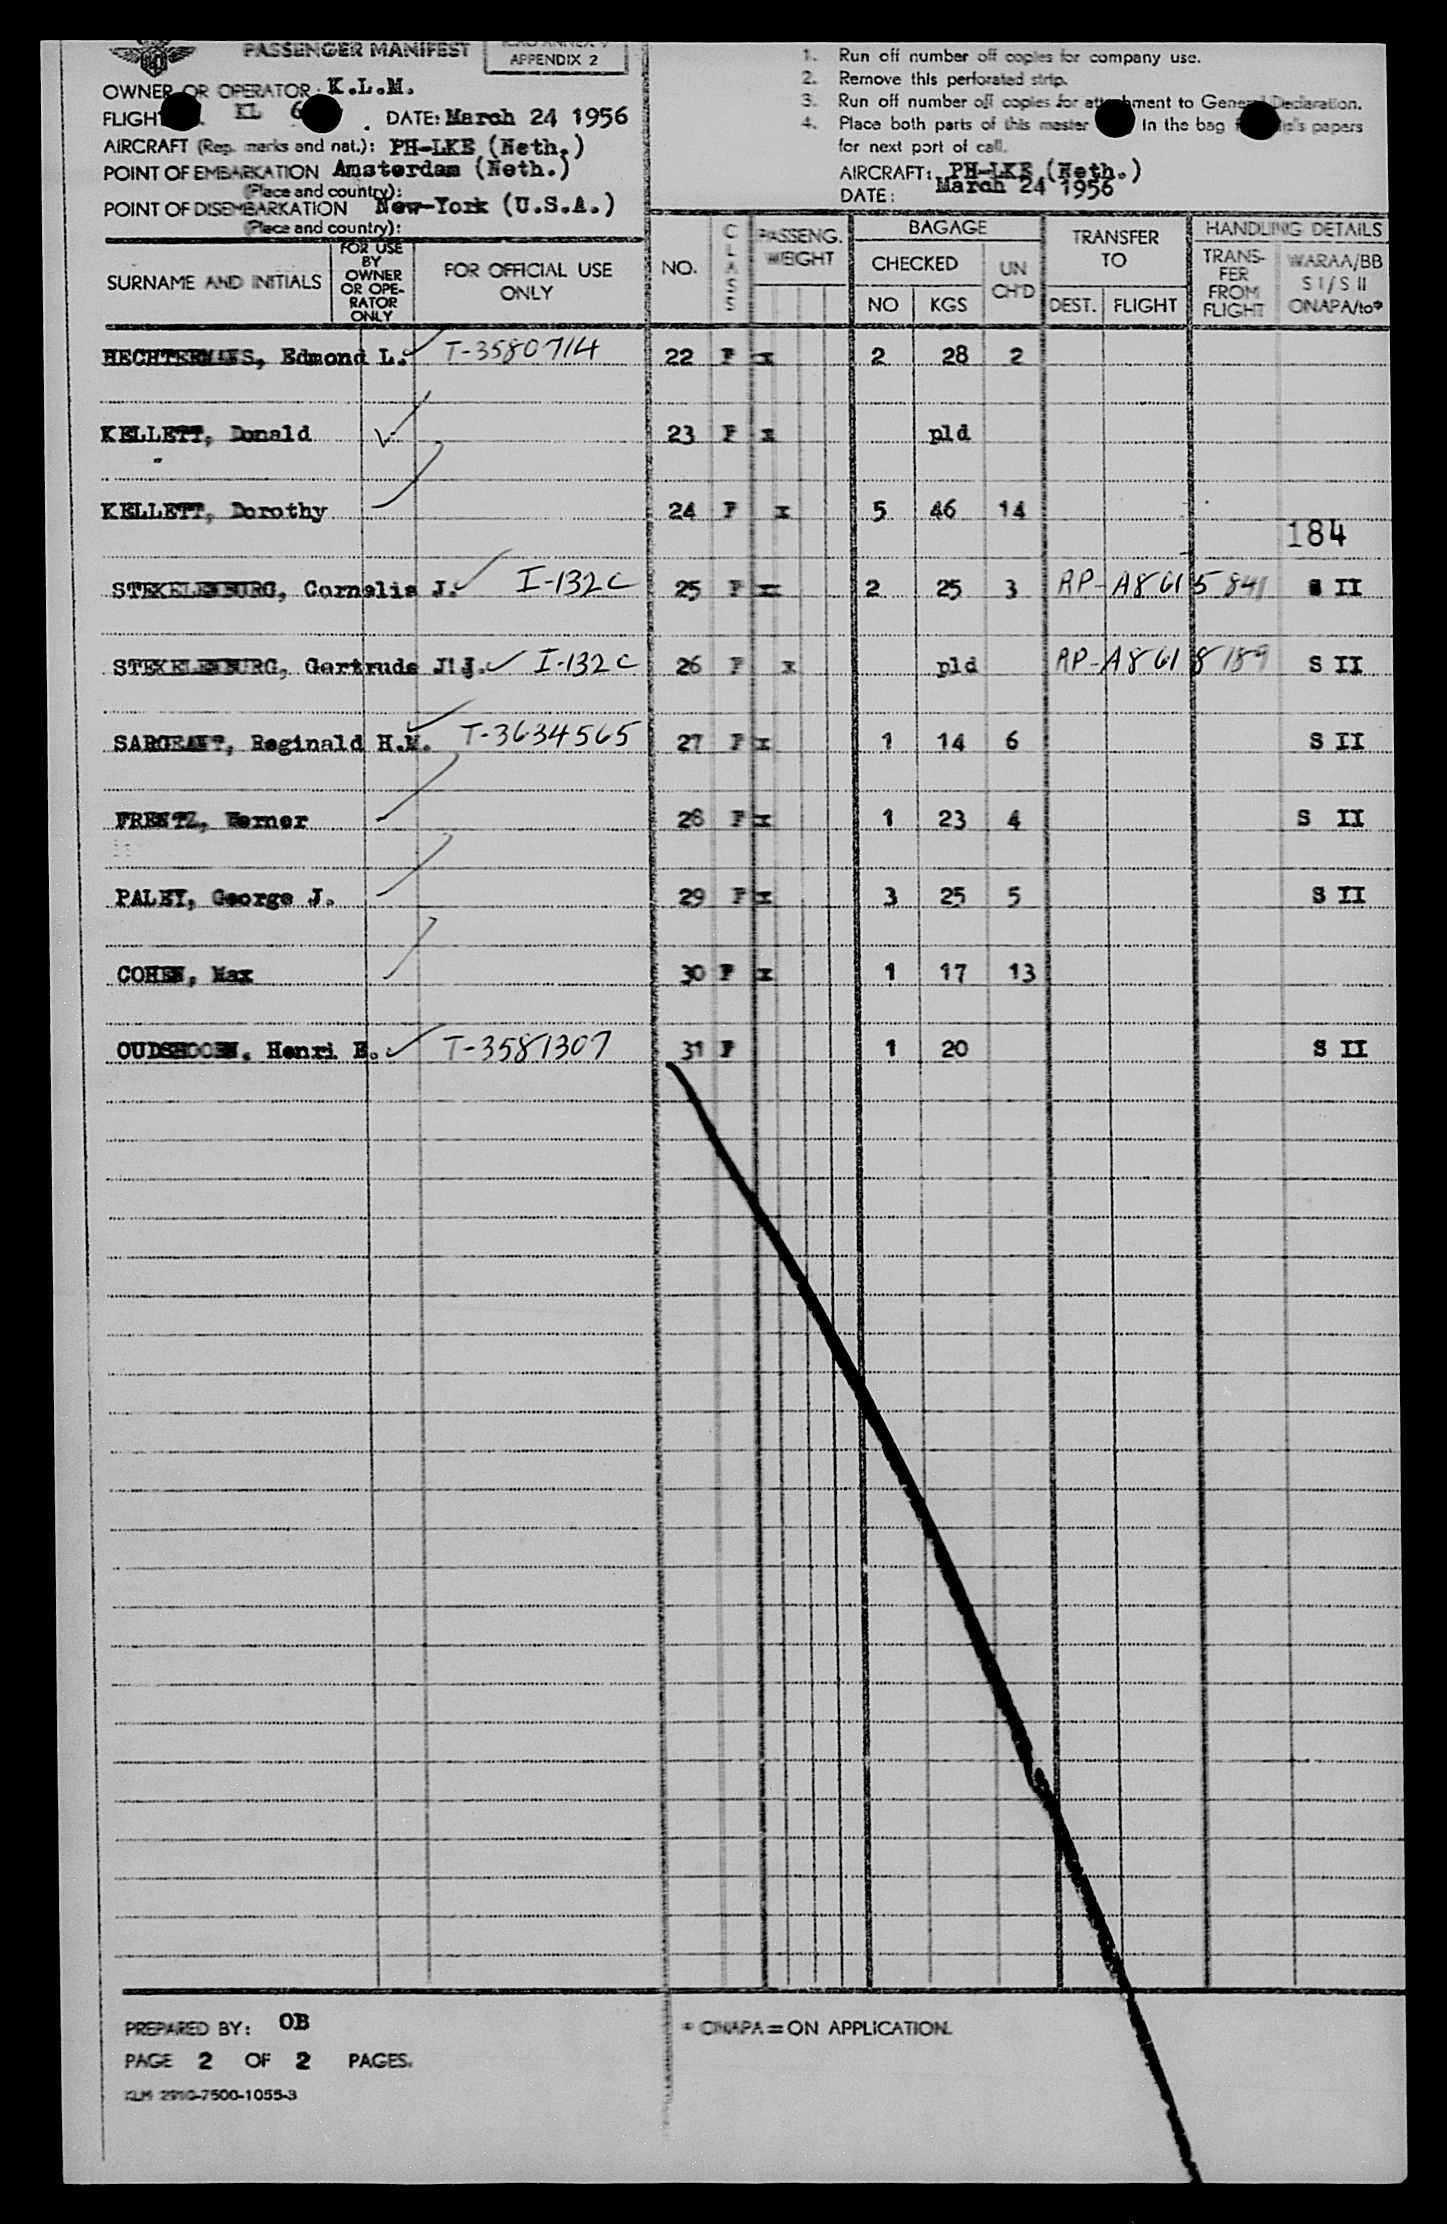 PASSENGER MANIFEST
APPENDIX 2
OWNER OR OPERATOR: K.L.M.
FLIGHT KL 6 DATE: March 24 1956
AIRCRAFT (Reg. marks and nat.): PH-LKE (Neth.)
POINT OF EMBARKATION Amsterdam (Neth.)
(Place and country):
POINT OF DISEMBARKATION New-York (U.S.A.)
(Place and country):
1. Run off number off copies for company use.
2. Remove this perforated strip.
3. Run off number off copies for attachment to General Declaration.
4. Place both parts of this master in the bag ship's papers
for next port of call.
AIRCRAFT: PH-LKE (Neth.)
DATE: March 24 1956
SURNAME AND INITIALS FOR USE BY OWNER OR OPE- RATOR ONLY FOR OFFICIAL USE ONLY NO. CLASS PASSENG. WEIGHT BAGAGE CHECKED NO KGS UN CH'D TRANSFER TO DEST. FLIGHT HANDLING DETAILS TRANS- FER FROM FLIGHT WARAA/BB S I / S II ONAPA/to*
HECHTERMANS, Edmond L. T-3580714 22 F x 2 28 2
KELLETT, Donald 23 F x pld
KELLETT, Dorothy 24 F x 5 46 14
184
STEKELENBURG, Cornelis J. I-132C 25 F x 2 25 3 RP-A8615841 S II
STEKELENBURG, Gertruda J.J. I-132C 26 F x pld RP-A8618189 S II
SARGEANT, Reginald H.M. T-3634565 27 F x 1 14 6 S II
FRENTZ, Werner 28 F x 1 23 4 S II
PALEY, George J. 29 F x 3 25 5 S II
COHEN, Max 30 F x 1 17 13
OUDSHOORN, Henri E. T-3581307 31 F 1 20 S II
PREPARED BY: OB
* ONAPA=ON APPLICATION.
PAGE 2 OF 2 PAGES.
KLM 2910-7500-1055-3